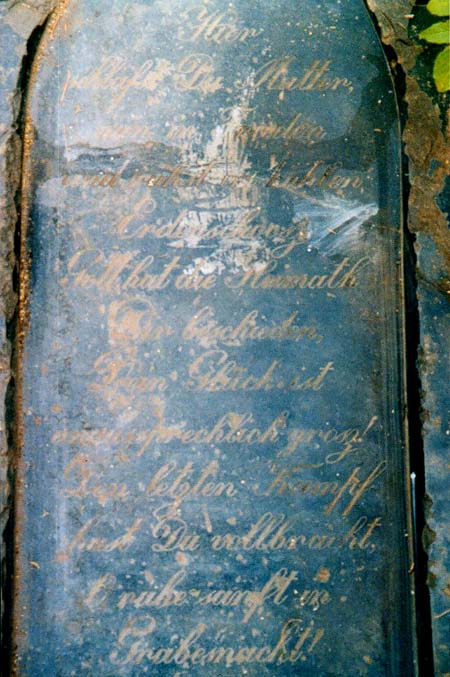 Hier
schläfst Du Mutter,
nun in Frieden
und ruhst im kühlen
Erdenschooß.
Gott hat die Heimath
Dir beschieden,
Dein Glück ist
unaussprechlich groß!
Den letzten Kampf
hast Du vollbracht,
O ruhe sanft in
Grabesnacht!